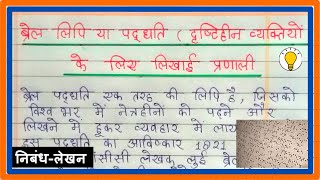 ब्रेल लिपि या पद्धति ( दृष्टिहीन व्यक्तियों
के लिए लिखाई प्रणाली
ब्रेल पद्धति एक तरह की लिपि है, जिसको
विश्व भर में नेत्रहीनों को पढ़ने और
लिखने में छूकर व्यवहार में लाया
इस पद्धति का आविष्कार 1821
सीसी लेखक लुई ब्रेल
निबंध-लेखन